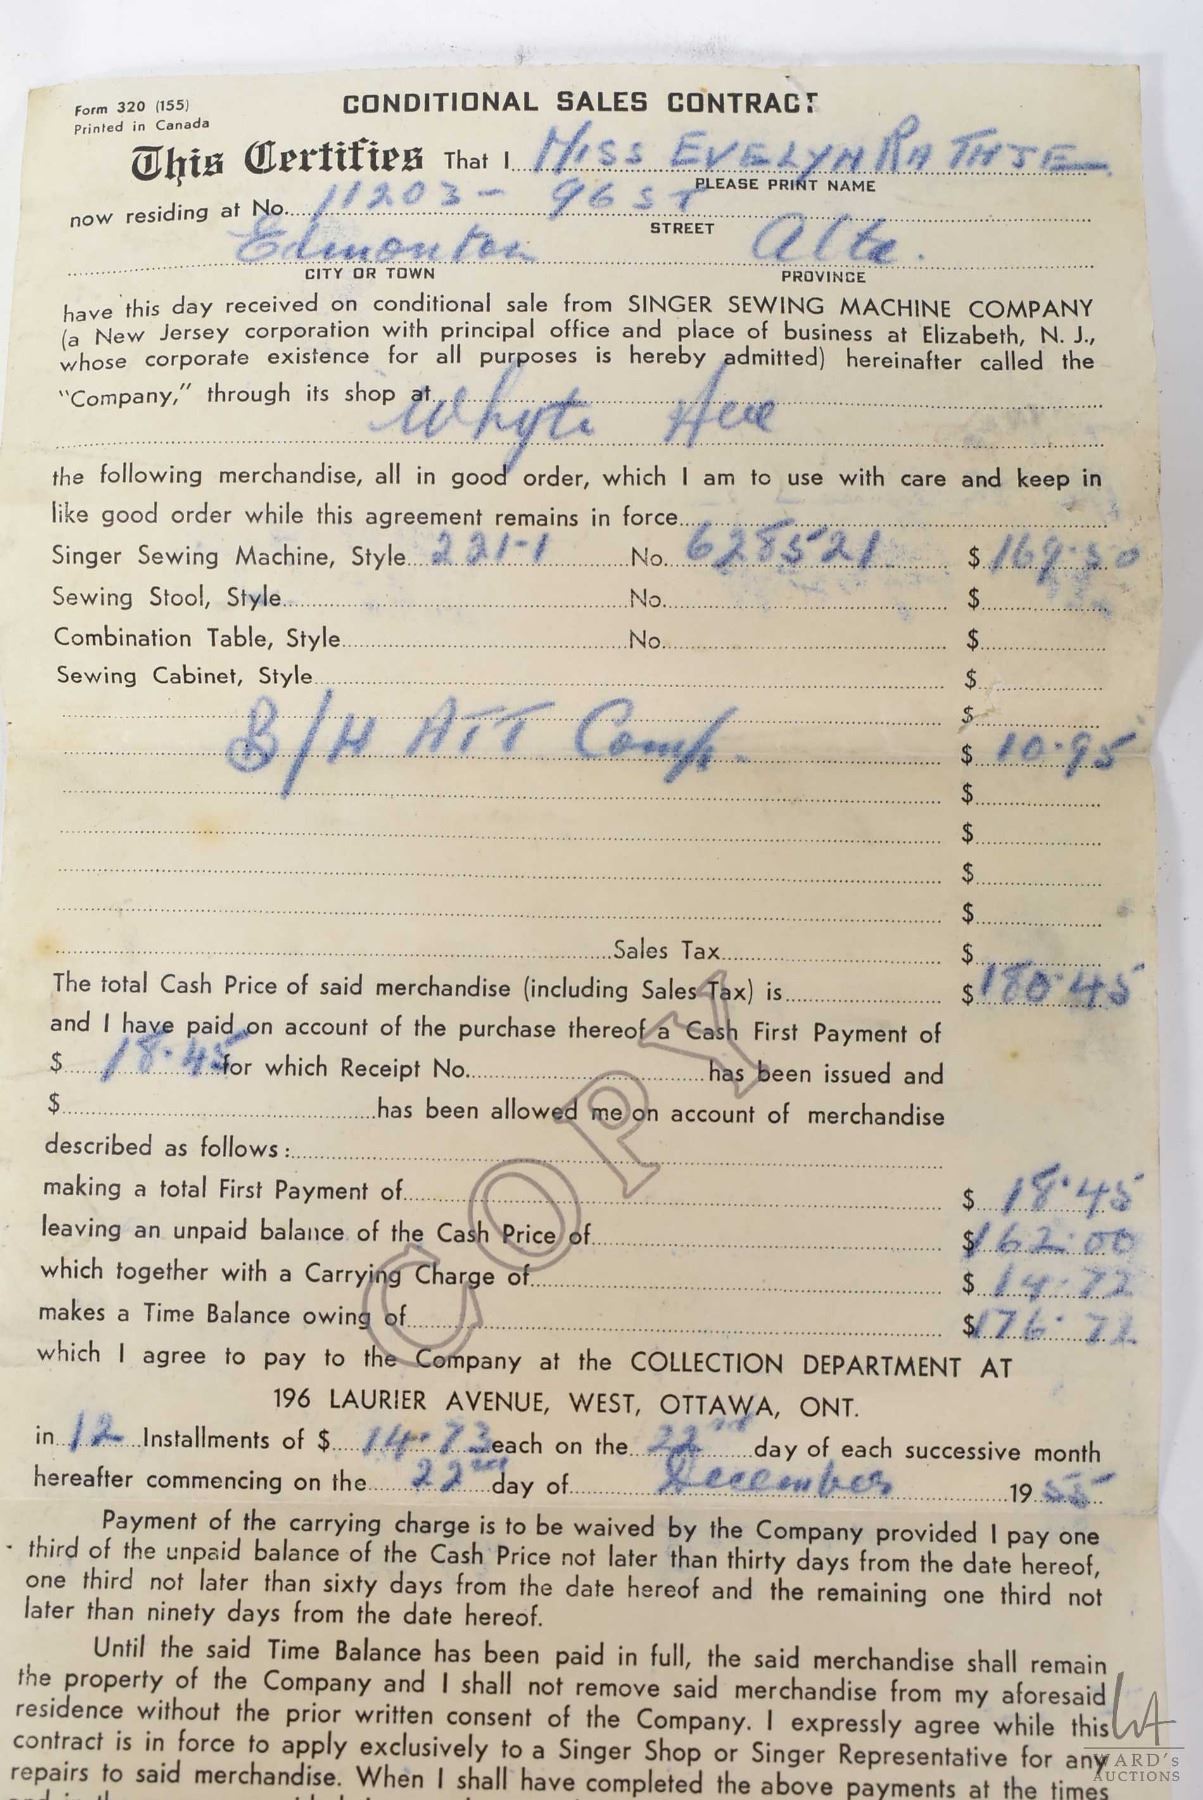 Form 320 (155)
Printed in Canada
CONDITIONAL SALES CONTRACT
This Certifies That I MISS EVELYN RATHJE
PLEASE PRINT NAME
now residing at No. 11203 - 96 ST
STREET
Edmonton Alta.
CITY OR TOWN PROVINCE
have this day received on conditional sale from SINGER SEWING MACHINE COMPANY
(a New Jersey corporation with principal office and place of business at Elizabeth, N. J.,
whose corporate existence for all purposes is hereby admitted) hereinafter called the
"Company," through its shop at
Whyte Ave
the following merchandise, all in good order, which I am to use with care and keep in
like good order while this agreement remains in force
Singer Sewing Machine, Style 221-1 No. 628521 $ 169.50
Sewing Stool, Style No. $
Combination Table, Style No. $
Sewing Cabinet, Style $
$
B/H ATT Comp. $ 10.95
$
$
$
$
Sales Tax $
The total Cash Price of said merchandise (including Sales Tax) is $ 180.45
and I have paid on account of the purchase thereof a Cash First Payment of
$ 18.45 for which Receipt No. has been issued and
$ has been allowed me on account of merchandise
described as follows:
making a total First Payment of $ 18.45
leaving an unpaid balance of the Cash Price of $ 162.00
which together with a Carrying Charge of $ 14.72
makes a Time Balance owing of $ 176.72
which I agree to pay to the Company at the COLLECTION DEPARTMENT AT
196 LAURIER AVENUE, WEST, OTTAWA, ONT.
in 12 Installments of $ 14.73 each on the 22nd day of each successive month
hereafter commencing on the 22nd day of December 1955
COPY
Payment of the carrying charge is to be waived by the Company provided I pay one
third of the unpaid balance of the Cash Price not later than thirty days from the date hereof,
one third not later than sixty days from the date hereof and the remaining one third not
later than ninety days from the date hereof.
Until the said Time Balance has been paid in full, the said merchandise shall remain
the property of the Company and I shall not remove said merchandise from my aforesaid
residence without the prior written consent of the Company. I expressly agree while this
contract is in force to apply exclusively to a Singer Shop or Singer Representative for any
repairs to said merchandise. When I shall have completed the above payments at the times
WARD's
AUCTIONS